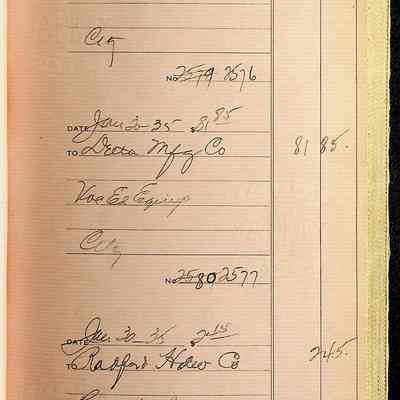 City
No 2579 2576
DATE Jan 30 35 81 85
TO Delta Mfg Co 81 85.
Voc Ed Equip
City
No 2580 2577
DATE Jan 30 35 2 45
TO Radford Hdw Co 2 45.